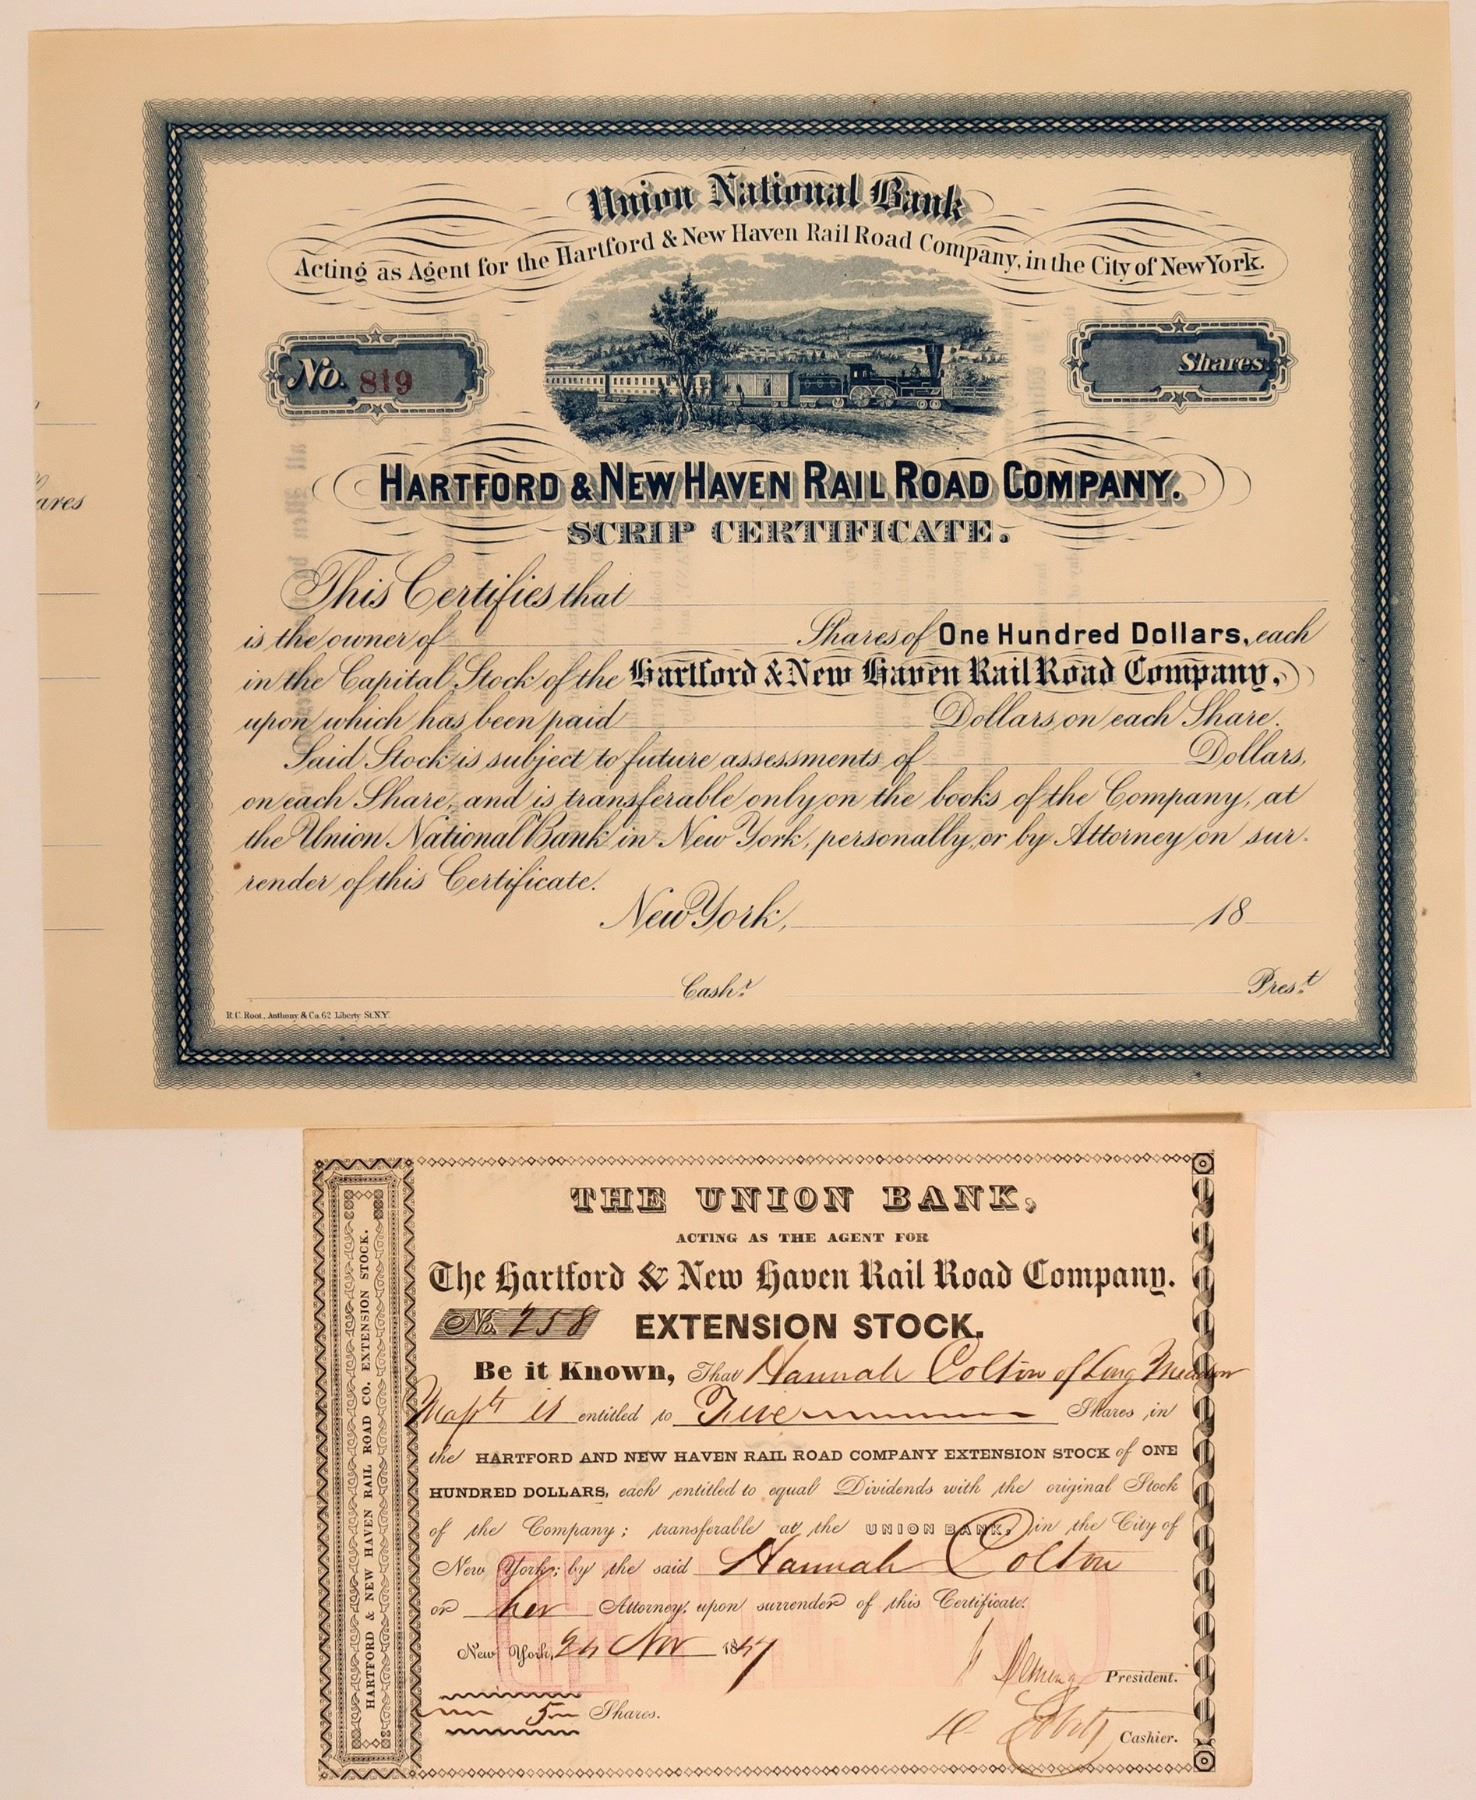 Union National Bank
Acting as Agent for the Hartford & New Haven Rail Road Company, in the City of New York.
No. 819
Shares
HARTFORD & NEW HAVEN RAIL ROAD COMPANY.
SCRIP CERTIFICATE.
This Certifies that
is the owner of Shares of One Hundred Dollars, each
in the Capital Stock of the Hartford & New Haven Rail Road Company,
upon which has been paid Dollars on each Share.
Said Stock is subject to future assessments of Dollars,
on each Share, and is transferable only on the books of the Company, at
the Union National Bank in New York, personally, or by Attorney on sur-
render of this Certificate.
New York, 18
Cashr. Prest.
R.C. Root, Anthony & Co. 62 Liberty St. N.Y.
ares
THE UNION BANK,
ACTING AS THE AGENT FOR
The Hartford & New Haven Rail Road Company.
No. 258 EXTENSION STOCK.
Be it Known, That Hannah Colton of Long Meadow
Masstts is entitled to Five Shares in
the HARTFORD AND NEW HAVEN RAIL ROAD COMPANY EXTENSION STOCK of ONE
HUNDRED DOLLARS, each entitled to equal Dividends with the original Stock
of the Company; transferable at the UNION BANK, in the City of
New York; by the said Hannah Colton
or her Attorney, upon surrender of this Certificate.
New York, 24 Nov 1847
Deming President.
5 Shares.
Cashier.
HARTFORD & NEW HAVEN RAIL ROAD CO. EXTENSION STOCK.